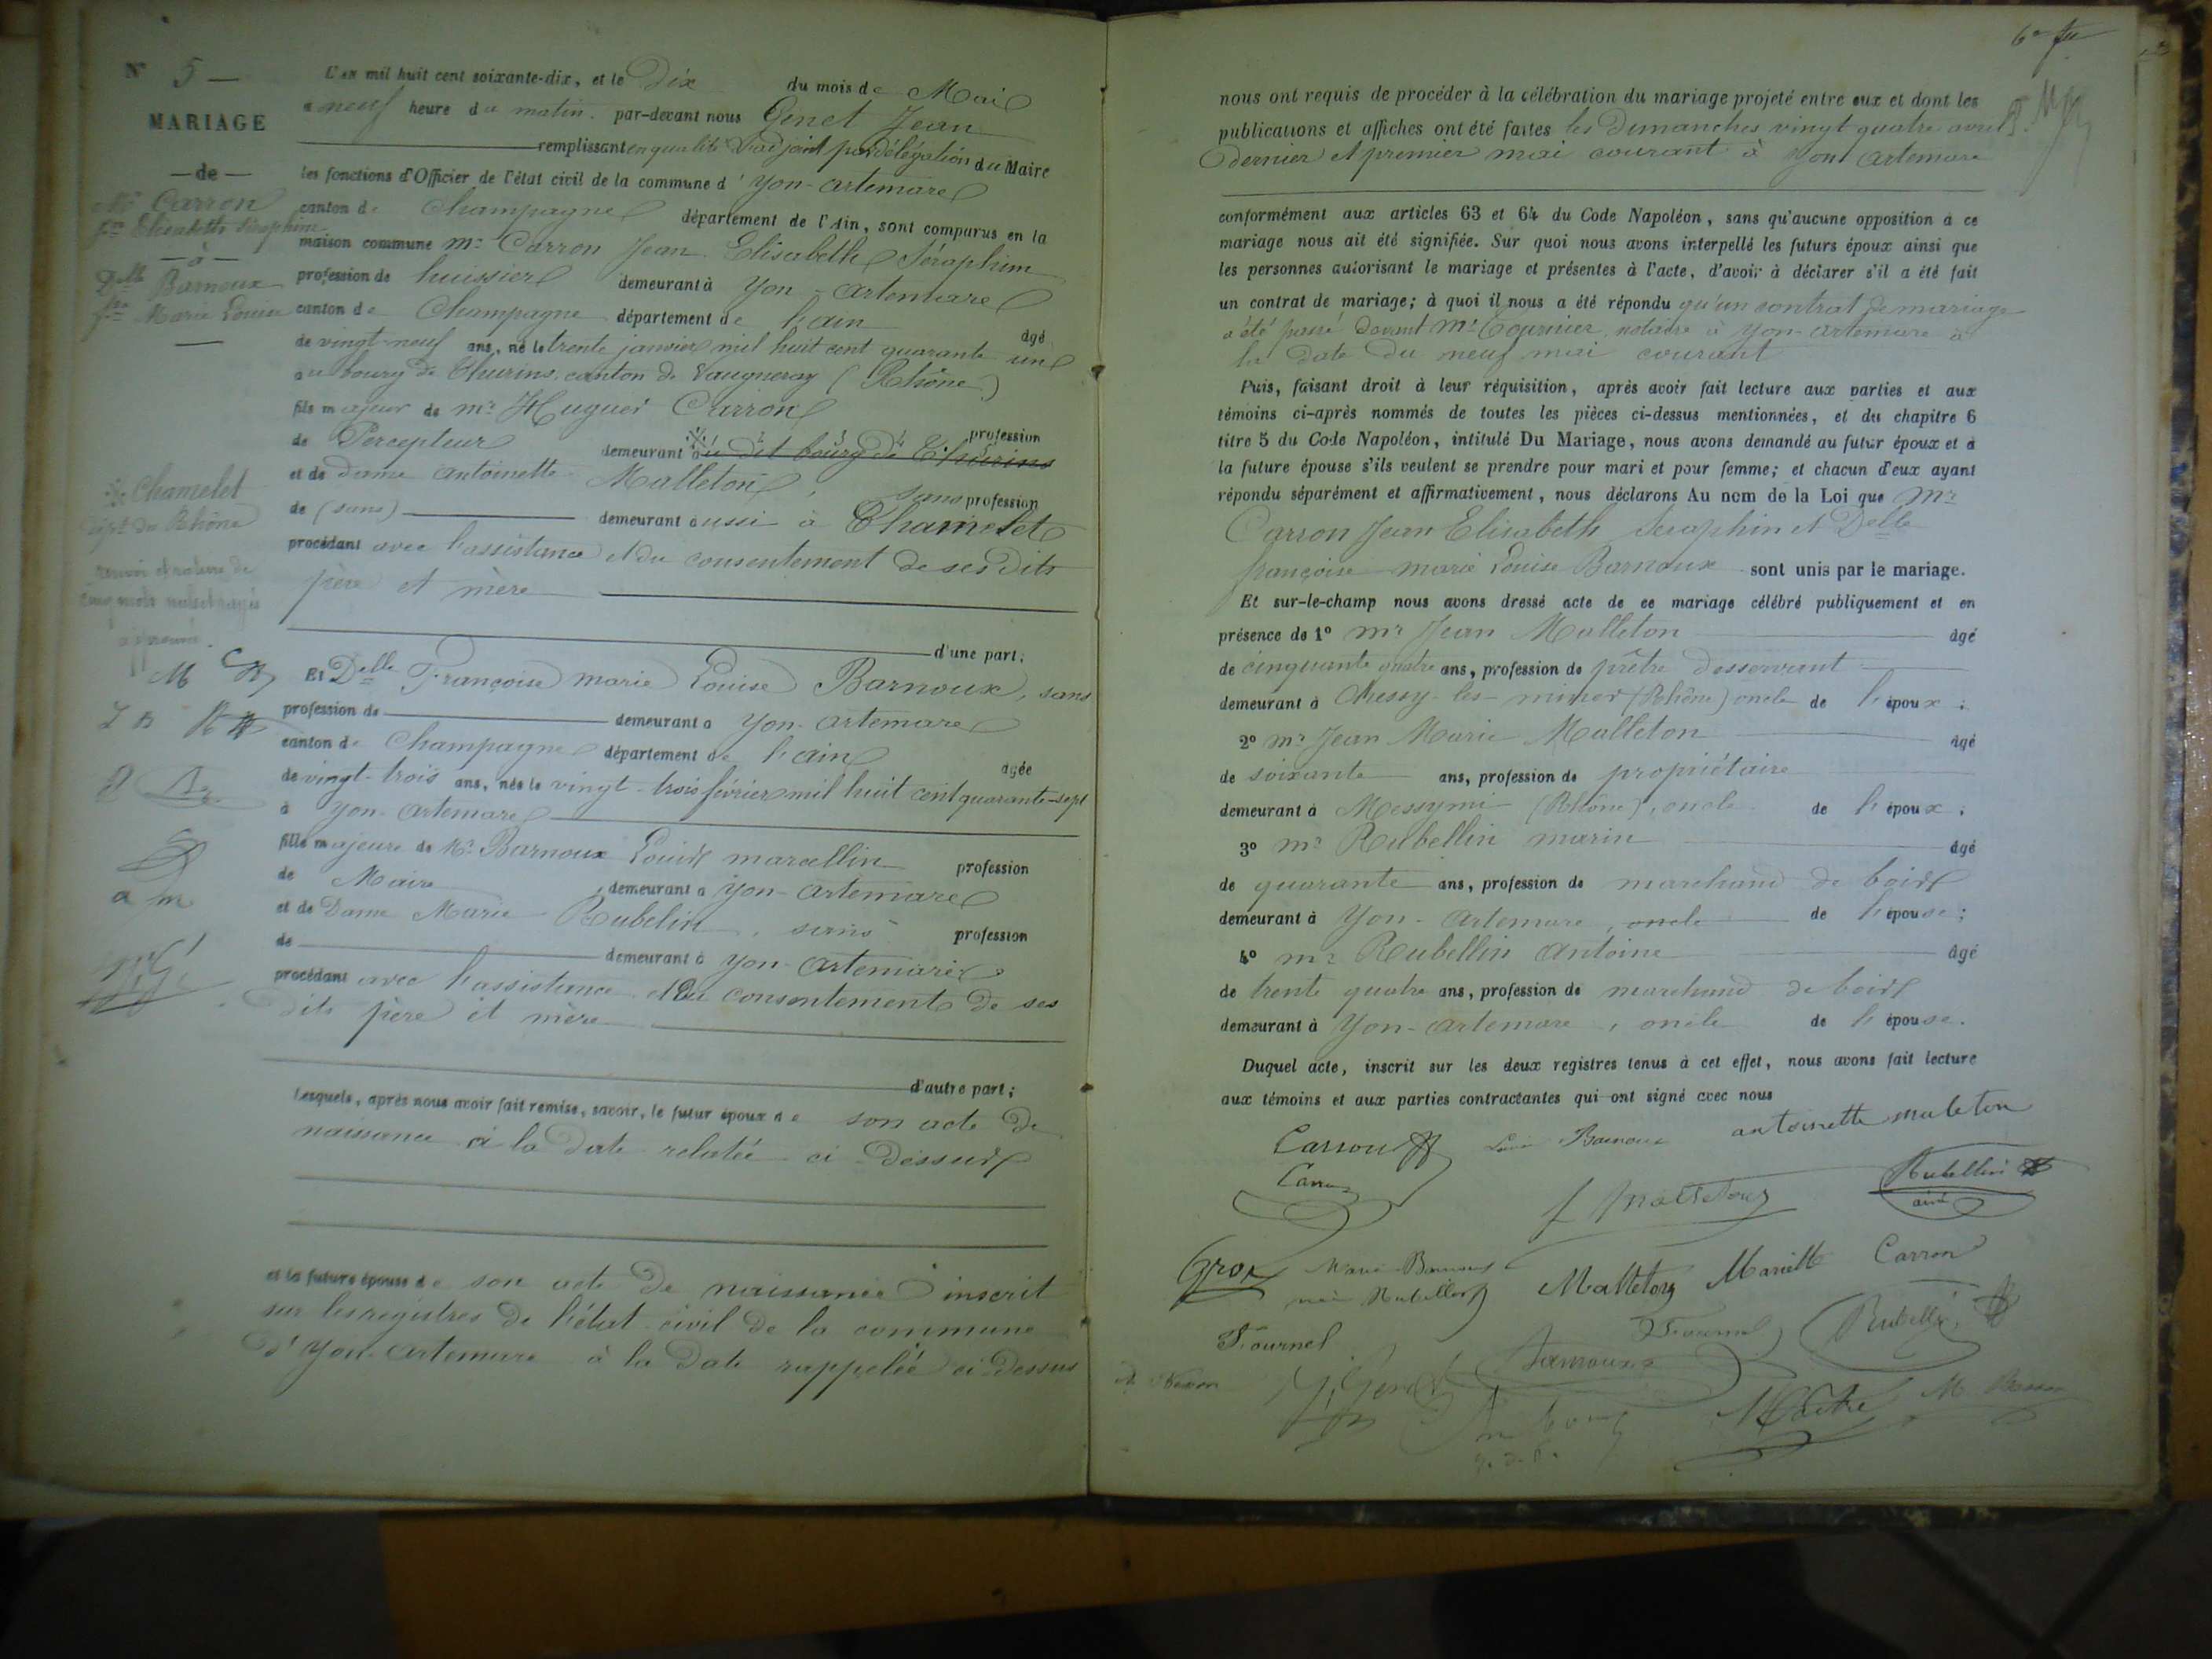 N° 5 —
MARIAGE
— de —
Mr Carron
Jn Elisabeth Séraphin
— à —
Delle Barnoux
fse Marie Louise
L'an mil huit cent soixante-dix, et le Dix du mois de Mai
à neuf heure du matin. par-devant nous Genet Jean
remplissant en qualité d'adjoint par délégation du Maire
les fonctions d'Officier de l'état civil de la commune d'yon-artemare
canton de Champagne département de l'Ain, sont comparus en la
maison commune mr Carron Jean Elisabeth Séraphim
profession de huissier demeurant à yon-artemare
canton de Champagne département de l'ain
âgé
de vingt-neuf ans, né le trente janvier mil huit cent quarante un
au bourg de Thurins, canton de Vaugneray (Rhône)
fils majeur de mr Hugues Carron
profession
de Percepteur demeurant au dit bourg de Thurins
et de dame antoinette Malleton, sans profession
de (sans) demeurant aussi à Chamelet
procédant avec l'assistance et du consentement de ses dits
père et mère
d'une part;
Chamelet
dépt du Rhône
renvoi et rature de
cinq mots
approuvé
M C B
L B
a m
Et Delle Françoise marie Louise Barnoux, sans
profession de demeurant à yon-artemare
canton de Champagne département de l'ain
âgée
de vingt-trois ans, née le vingt-trois février mil huit cent quarante-sept
à yon-artemare
fille majeure de Mr Barnoux Louis marcellin profession
de Maire demeurant à yon-artemare
et de Dame Marie Rubelin, sans profession
de demeurant à yon-artemare
procédant avec l'assistance et du consentement de ses
dits père et mère
d'autre part;
Lesquels, après nous avoir fait remise, savoir, le futur époux de son acte de
naissance à la date relatée ci-dessus
et la future épouse de son acte de naissance inscrit
sur les registres de l'état civil de la commune
d'yon-artemare à la date rappelée ci-dessus
nous ont requis de procéder à la célébration du mariage projeté entre eux et dont les
publications et affiches ont été faites les dimanches vingt quatre avril
dernier et premier mai courant à yon artemare
conformément aux articles 63 et 64 du Code Napoléon, sans qu'aucune opposition à ce
mariage nous ait été signifiée. Sur quoi nous avons interpellé les futurs époux ainsi que
les personnes autorisant le mariage et présentes à l'acte, d'avoir à déclarer s'il a été fait
un contrat de mariage; à quoi il nous a été répondu qu'un contrat de mariage
a été passé devant mr notaire à yon-artemare à
la date du neuf mai courant
Puis, faisant droit à leur réquisition, après avoir fait lecture aux parties et aux
témoins ci-après nommés de toutes les pièces ci-dessus mentionnées, et du chapitre 6
titre 5 du Code Napoléon, intitulé Du Mariage, nous avons demandé au futur époux et à
la future épouse s'ils veulent se prendre pour mari et pour femme; et chacun d'eux ayant
répondu séparément et affirmativement, nous déclarons Au nom de la Loi que Mr
Carron Jean Elisabeth Seraphin et Delle
françoise marie Louise Barnoux sont unis par le mariage.
Et sur-le-champ nous avons dressé acte de ce mariage célébré publiquement et en
présence de 1° mr Jean Malleton âgé
de cinquante quatre ans, profession de prêtre desservant
demeurant à Chessy-les-mines (Rhône) oncle de l'époux;
2° mr Jean Marie Malleton âgé
de soixante ans, profession de propriétaire
demeurant à Messymi (Rhône), oncle de l'époux;
3° mr Rubellin marin âgé
de quarante ans, profession de marchand de bois
demeurant à Yon-Artemare, oncle de l'épouse;
4° mr Rubellin Antoine âgé
de trente quatre ans, profession de marchand de bois
demeurant à Yon-artemare, oncle de l'épouse.
Duquel acte, inscrit sur les deux registres tenus à cet effet, nous avons fait lecture
aux témoins et aux parties contractantes qui ont signé avec nous
Carron Louise Barnoux antoinette maleton
Carron
J Malleton Rubellin
ainé
Gros Marie Barnoux Malleton Mariette Carron
née Rubellin
Fournel Fournel Rubellin
Barnoux
J. Genet